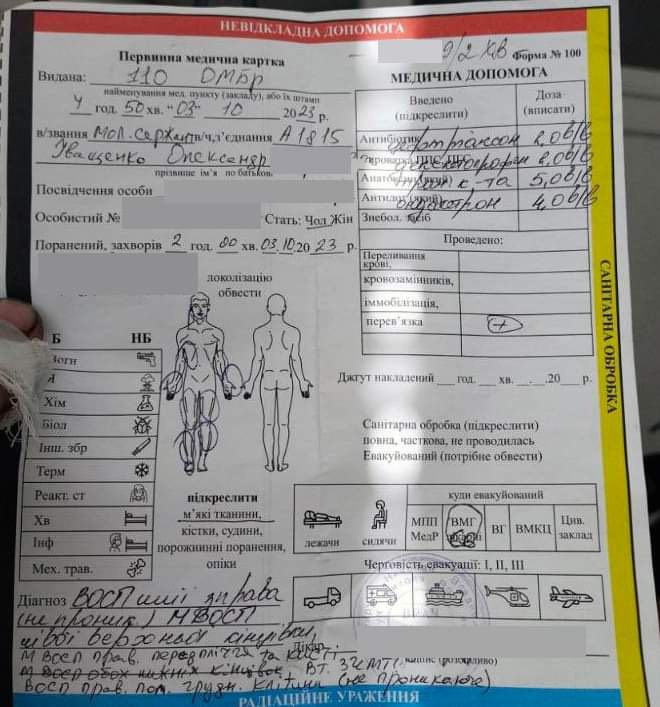 НЕВІДКЛАДНА ДОПОМОГА
Первинна медична картка
Видана: 110 ОМБр
найменування мед. пункту (закладу), або їх штамп
4 год. 50 хв. "03" 10 2023 р.
в/звання мол. сержант в/ч, з'єднання А1815
Іващенко Олександр
прізвище ім'я по батькові
Посвідчення особи
Особистий № Стать: Чол Жін
Поранений, захворів 2 год. 00 хв. 03.10.2023 р.
локолізацію
обвести
Б НБ
Вогн
Я
Хім
Біол
Інш. збр
Терм
Реакт. ст
Хв
Інф
Мех. трав.
підкреслити
м'які тканини,
кістки, судини,
порожнинні поранення,
опіки
Діагноз ВОСП шиї зправа
(не проник.) М ВОСП
лівої верхньої кінцівки,
М ВОСП прав. передпліччя та кисті
М ВОСП обох нижніх кінцівок, ВТ. ЗЧМТ.
ВОСП прав. пол. грудн. клітини (не проникаюче)
9/2 ХВ Форма № 100
МЕДИЧНА ДОПОМОГА
Введено
(підкреслити)
Доза
(вписати)
Антибіотик 2,0 в/в
2,0 в/в
транекс. к-та 5,0 в/в
Антидот (який) 4,0 в/в
Знебол. засіб
Проведено:
Переливання
крові,
кровозамінників,
іммобілізація,
перев'язка +
Джгут накладений ___ год. ___ хв. ___.___.20___ р.
Санітарна обробка (підкреслити)
повна, часткова, не проводилась
Евакуйований (потрібне обвести)
куди евакуйований
лежачи сидячи
МПП
МедР
ВМГ
ВГ
ВМКЦ
Цив.
заклад
Черговість евакуації: І, ІІ, ІІІ
Лікар
САНІТАРНА ОБРОБКА
РАДІАЦІЙНЕ УРАЖЕННЯ